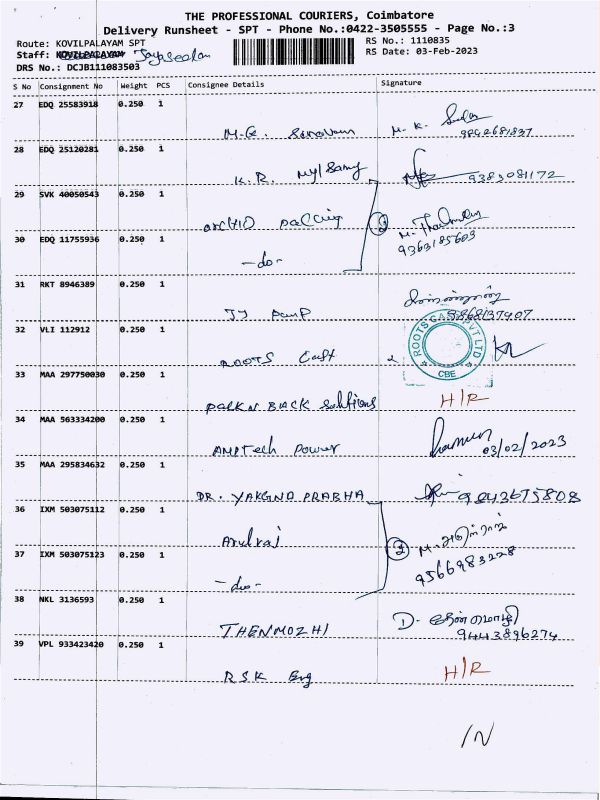 THE PROFESSIONAL COURIERS, Coimbatore
Delivery Runsheet - SPT - Phone No.:0422-3505555 - Page No.:3
Route: KOVILPALAYAM SPT
RS No.: 1110835
Staff: KOVILPALAYAM
RS Date: 03-Feb-2023
DRS No.: DCJB111083503
S No Consignment No Weight PCS Consignee Details Signature
27 EDQ 25583918 0.250 1
M. K.
28 EDQ 25120281 0.250 1
K.R. 9383081172
29 SVK 40050543 0.250 1
ORCHID packing 2 M.
9363185603
30 EDQ 11755936 0.250 1
-do-
31 RKT 8946389 0.250 1
JJ pump 9868137407
32 VLI 112912 0.250 1
ROOTS Cast ROOTS CAST PVT LTD CBE
33 MAA 297750030 0.250 1
PACKN BACK Solutions H/R
34 MAA 563334200 0.250 1
AMPTech Power 03/02/2023
35 MAA 295834632 0.250 1
DR. YAKGNA PRABHA 9843675808
36 IXM 503075112 0.250 1
Arulraj 2 M. அருள்ராஜ்
9566983228
37 IXM 503075123 0.250 1
-do-
38 NKL 3136593 0.250 1
THENMOZHI D. தேன்மொழி
9443896274
39 VPL 933423420 0.250 1
RSK Eng H/R
IN